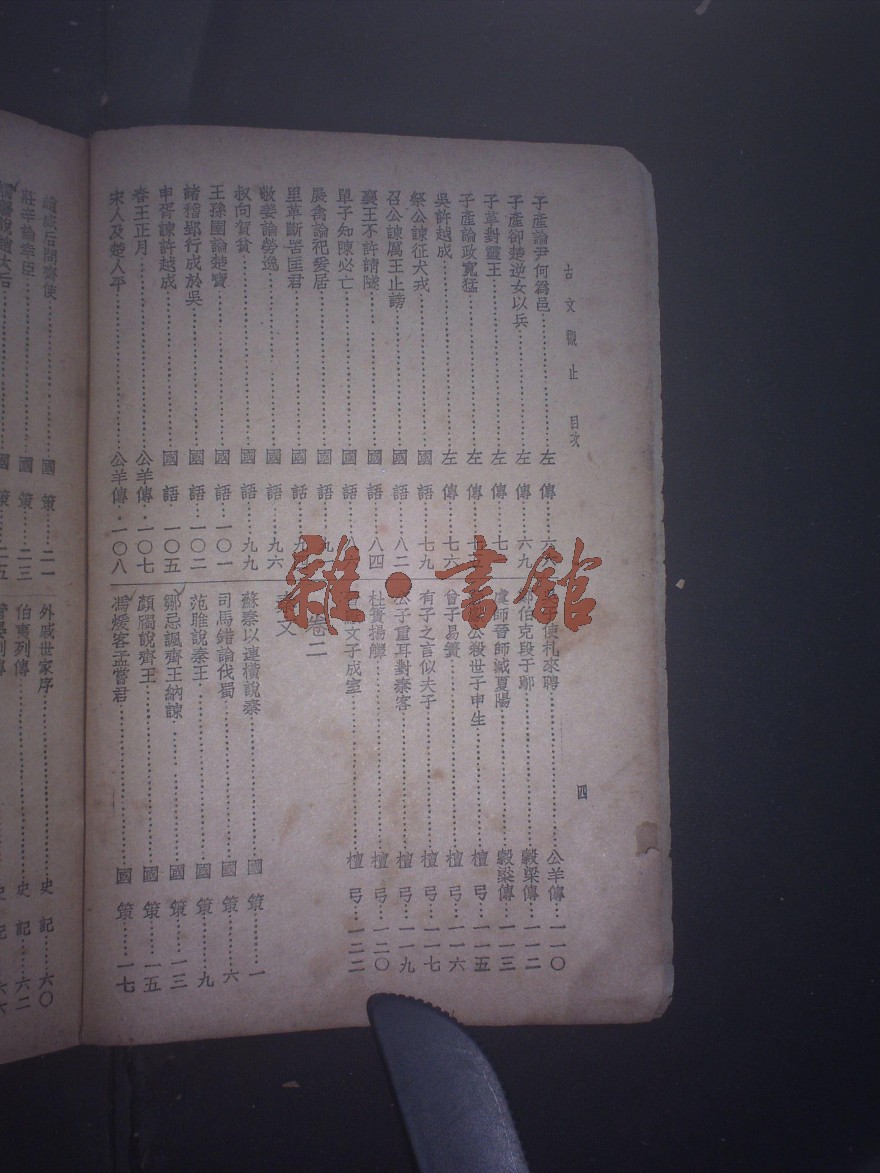 古文觀止 目次
四
子產論尹何爲邑 左傳
子產卻楚逆女以兵 左傳 六九
子革對靈王 左傳
子產論政寬猛 左傳
吳許越成 左傳 七六
祭公諫征犬戎 國語 七九
召公諫厲王止謗 國語 八二
襄王不許請隧 國語 八四
單子知陳必亡 國語
展禽論祀爰居 國語
里革斷罟匡君 國語
敬姜論勞逸 國語 九六
叔向賀貧 國語 九九
王孫圉論楚寶 國語 一〇一
諸稽郢行成於吳 國語 一〇二
申胥諫許越成 國語 一〇五
春王正月 公羊傳 一〇七
宋人及楚人平 公羊傳 一〇八
使札來聘 公羊傳 一一〇
伯克段于鄢 穀梁傳 一一二
虞師晉師滅夏陽 穀梁傳 一一三
公殺世子申生 檀弓 一一五
曾子易簀 檀弓 一一六
有子之言似夫子 檀弓 一一七
公子重耳對秦客 檀弓 一一九
杜蕢揚觶 檀弓 一二〇
文子成室 檀弓 一二二
卷二
文
蘇秦以連橫說秦 國策 一
司馬錯論伐蜀 國策 六
范雎說秦王 國策 九
鄒忌諷齊王納諫 國策 一三
顏斶說齊王 國策 一五
馮煖客孟嘗君 國策 一七
后問齊使 國策 二一
莊辛論幸臣 國策 二三
國策 二五
外戚世家序 史記 六〇
伯夷列傳 史記 六二
雜·書館